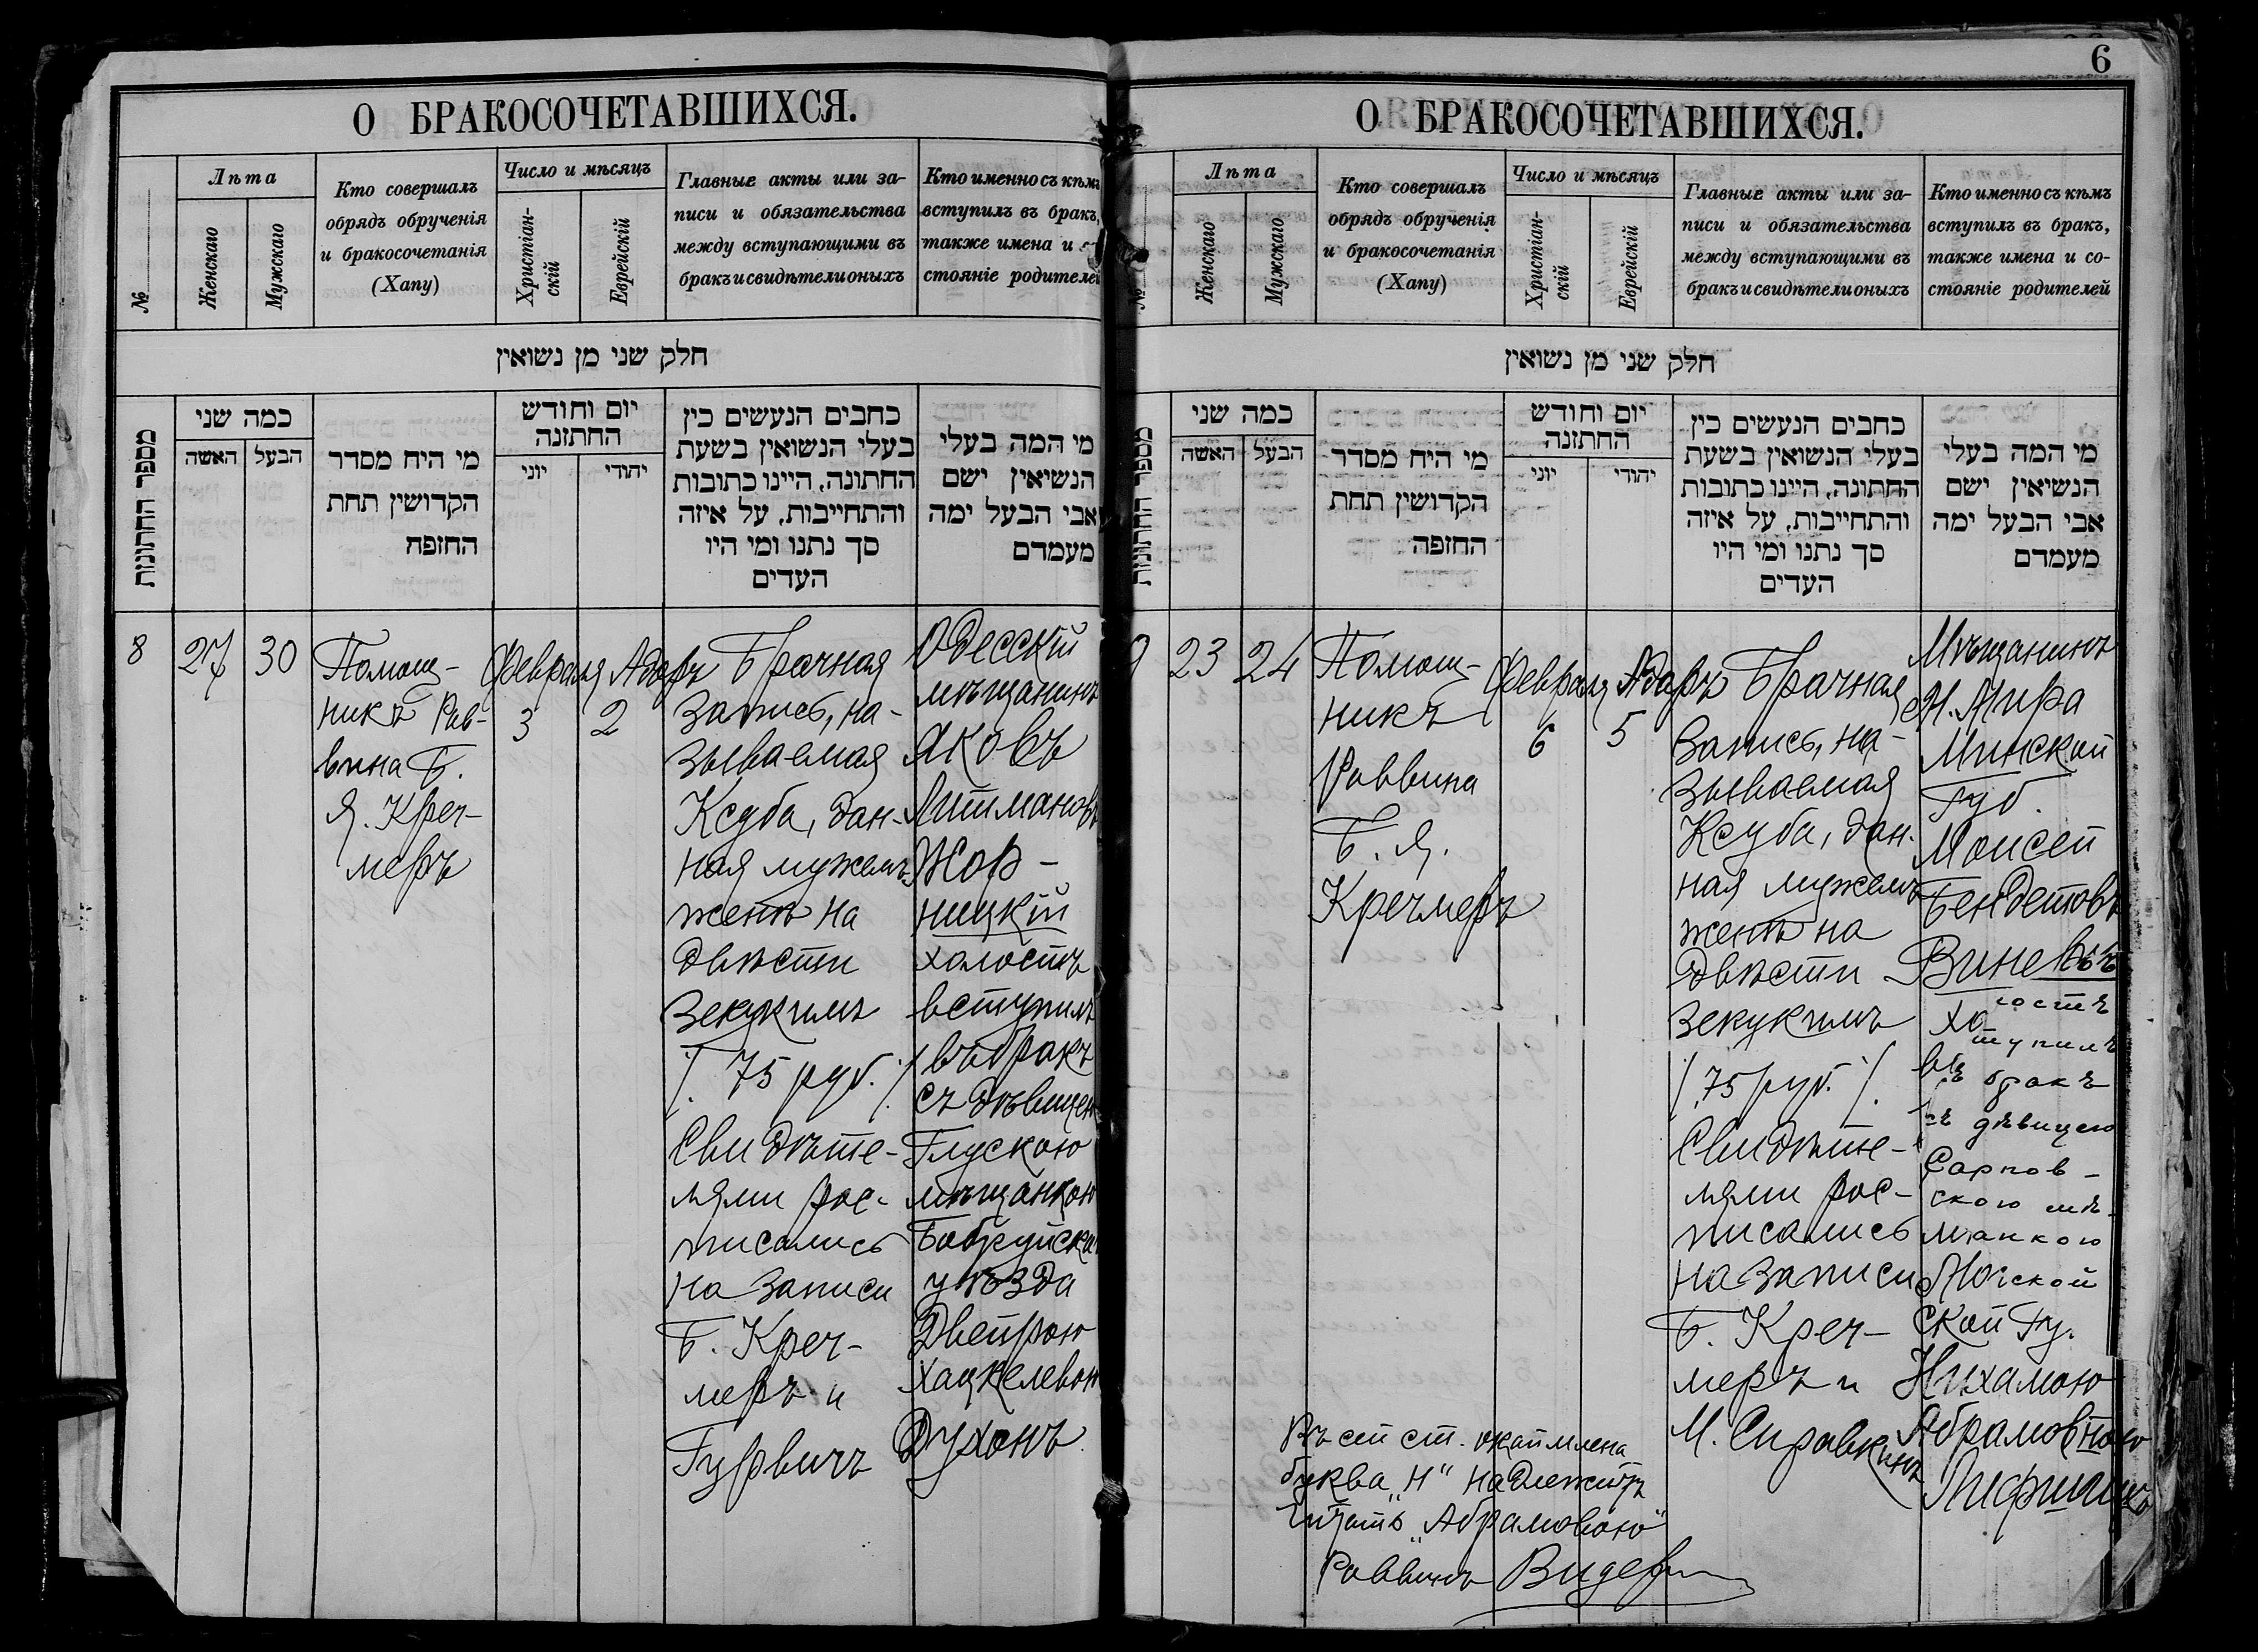 6
О БРАКОСОЧЕТАВШИХСЯ.
№
Лѣта
Женскаго
Мужскаго
Кто совершалъ
обрядъ обрученія
и бракосочетанія
(Хапу)
Число и мѣсяцъ
Христіан-
скій
Еврейскій
Главные акты или за-
писи и обязательства
между вступающими въ
бракъ и свидѣтели оныхъ
Кто именно съ кѣмъ
вступилъ въ бракъ,
также имена и
стояніе родителей
חלק שני מן נשואין
מספר החתונות
כמה שני
האשה
הבעל
מי היח מסדר
הקדושין תחת
החזפה
יום וחודש
החתזנה
יוני
יהודי
כחבים הנעשים כין
בעלי הנשואין בשעת
החתונה, היינו כתובות
והתחייבות, על איזה
סך נתנו ומי היו
העדים
מי המה בעלי
הנשיאין ישם
אבי הבעל ימה
מעמדם
8
27
30
Помощ-
никъ Рав-
вина Б.
Я. Креч-
меръ
Февраля
3
Адаръ
2
Брачная
запись, на-
зываемая
Ксуба, дан-
ная мужемъ
женѣ на
двѣсти
зекукимъ
/. 75 руб. ./
Свидѣте-
лями рос-
писались
на записи
Б. Креч-
меръ и
Гурвичъ
Одесскій
мѣщанинъ
Яковъ
Литмановъ
Жор-
ницкій
холостъ
вступилъ
въ бракъ
съ дѣвицею
Глускою
мѣщанкою
Бобруйска
уѣзда
Двейрою
Хацкелевою
Духонъ
О БРАКОСОЧЕТАВШИХСЯ.
№
Лѣта
Женскаго
Мужскаго
Кто совершалъ
обрядъ обрученія
и бракосочетанія
(Хапу)
Число и мѣсяцъ
Христіан-
скій
Еврейскій
Главные акты или за-
писи и обязательства
между вступающими въ
бракъ и свидѣтели оныхъ
Кто именно съ кѣмъ
вступилъ въ бракъ,
также имена и со-
стояніе родителей
חלק שני מן נשואין
מספר החתונות
כמה שני
האשה
הבעל
מי היח מסדר
הקדושין תחת
החזפה
יום וחודש
החתזנה
יוני
יהודי
כחבים הנעשים כין
בעלי הנשואין בשעת
החתונה, היינו כתובות
והתחייבות, על איזה
סך נתנו ומי היו
העדים
מי המה בעלי
הנשיאין ישם
אבי הבעל ימה
מעמדם
9
23
24
Помощ-
никъ
Раввина
Б. Я.
Кречмеръ
Февраля
6
Адаръ
5
Брачная
запись, на-
зываемая
Ксуба, дан-
ная мужемъ
женѣ на
двѣсти
зекукимъ
/. 75 руб. /.
Свидѣте-
лями рос-
писались
на записи
Б. Креч-
меръ и
М. Сиравкинъ
Мѣщанинъ
М. Мира
Минской
Губ.
Моисей
Бендетовъ
Холостъ
въ бракъ
съ дѣвицею
скою мѣ-
ской Гу.
Нихамою
Абрамовною
Въ сей ст. окаймлена
буква „Н" надлежитъ
читать „Абрамовою"
Раввинъ